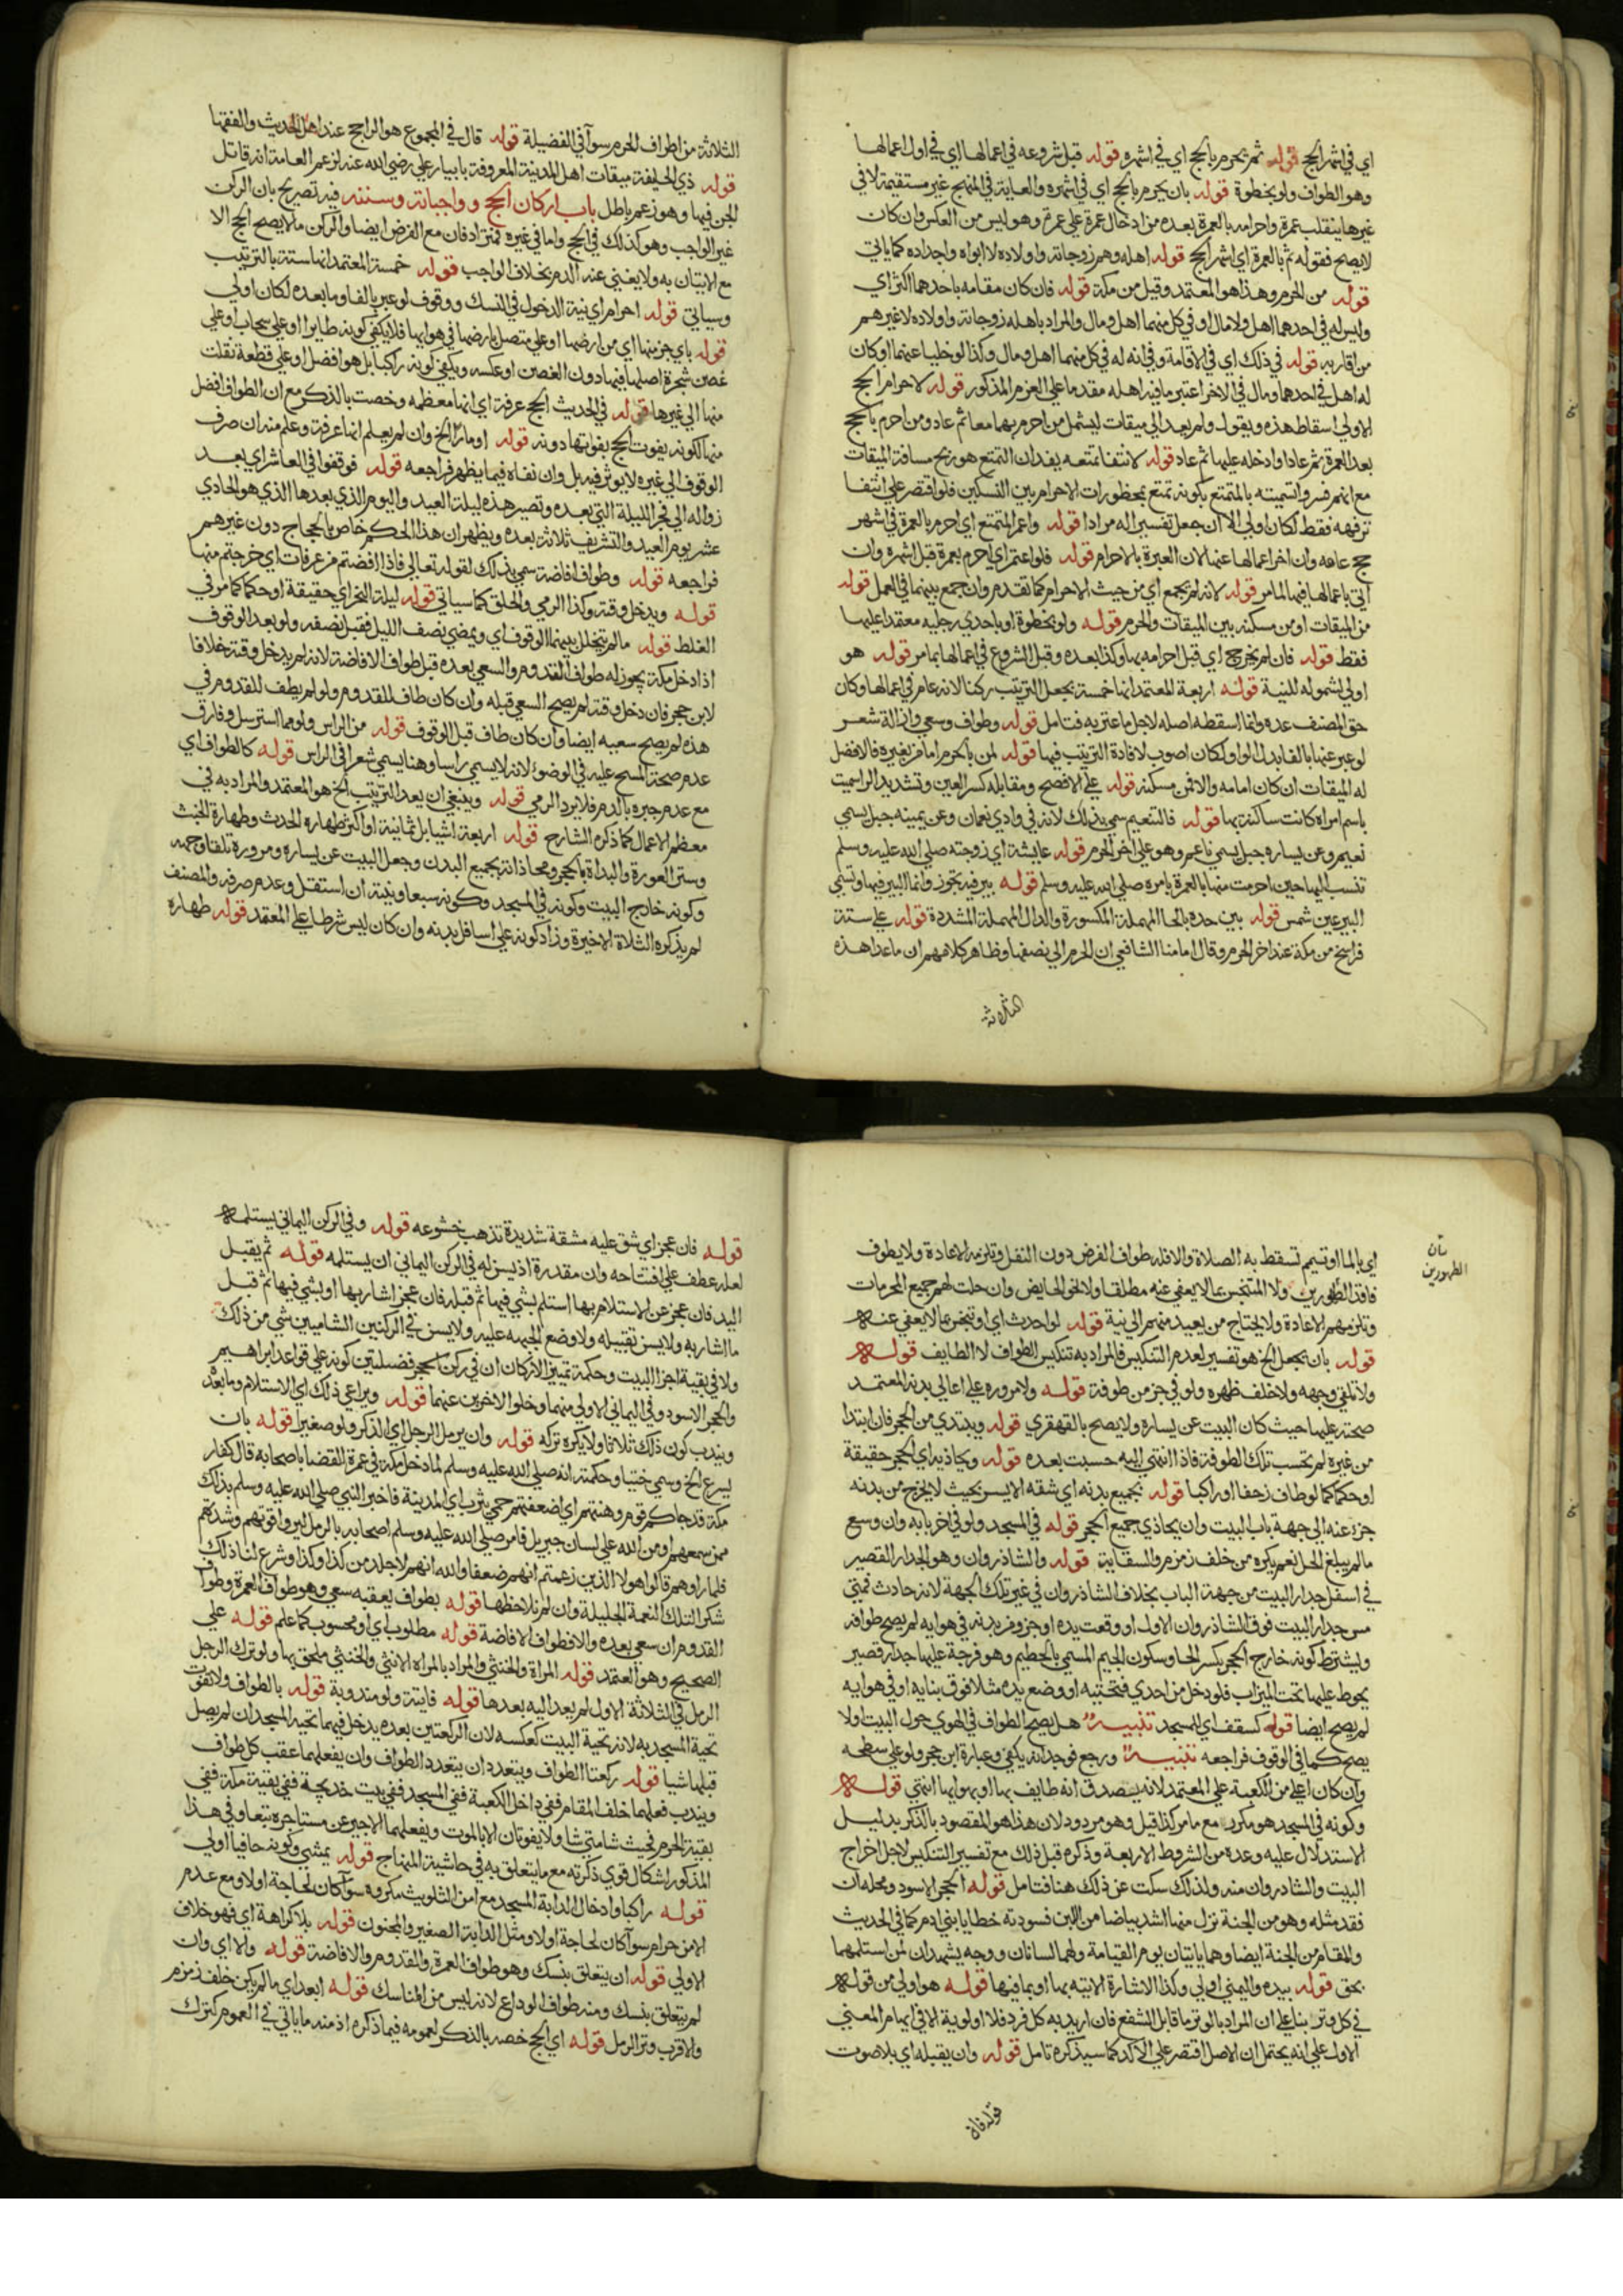 اي في اشهر الحج قوله ثم يحرم بالحج اي في اشهره قوله قبل شروعه في اعمالها اي في اول اعمالها
وهو الطواف ولو بخطوة قوله بان يحرم بالحج اي في اشهره والعباية في المنهج غير مستقيمة لا في
غيرها ينقلب عمرة واحرامه بالعمرة بعده من ادخال عمرة علي عمرة وهو ليس من العكس وان كان
لا يصح فقوله ثم بالعمرة اي اشهر الحج قوله اهله وهم زوجاته واولاده لا ابواه واجداده كما ياتي
قوله من الحرم وهذا هو المعتمد وقيل من مكة قوله فان كان مقامه باحدهما اكثر اي
وليس له في احدهما اهل ولا مال او في كل منهما اهل ومال والمراد باهله زوجاته واولاده لا غيرهم
من اقاربه قوله في ذلك اي في الاقامة وفي انه له في كل منهما اهل ومال وكذا لو خليا عنهما او كان
له اهل في احدهما ومال في الاخر اعتبر ما فيه اهله مقدما علي العزم المذكور قوله لاحرام الحج
الاولي اسقاط هذه ويقول ولم يعد الي ميقات ليشمل من احرم بهما معا ثم عاد ومن احرم بالحج
بعد العمرة ثم عاد او ادخله عليها ثم عاد قوله لانتفا تمتعه يفيد ان التمتع هو ربح مسافة الميقات
مع انهم فسروا تسميته بالمتمتع بكونه تمتع بمحظورات الاحرام بين النسكين فلو اقتصر علي انتفا
ترفهه فقط لكان اولي الا ان جعل تفسيرا له مرادا قوله واعمر المتمتع اي احرم بالعمرة في اشهر
حج عامه وان اخر اعمالها عنها لان العبرة بالاحرام قوله فلو اعتمر اي احرم بعمرة قبل اشهره وان
اتي باعمالها فيها لما مر قوله لانه لم يجمع اي من حيث الاحرام كما تقدم وان جمع بينهما في العمل قوله
من الميقات او من مسكنه بين الميقات والحرم قوله ولو بخطوة او باحدي رجليه معتمدا عليها
فقط قوله فان لم يخرج اي قبل احرامه بها وكذا بعده وقبل الشروع في اعمالها بما مر قوله هو
اولي لشموله للنية قوله اربعة المعتمد انها خمسة بجعل الترتيب ركنا لانه عام في اعمالها وكان
حق المصنف عده وانما اسقطه اصله لاجل ما عتر به فتامل قوله وطواف وسعي وازالة شعر
لو عبر عنها بالفا بدل الواو لكان اصوب لافادة الترتيب فيها قوله لمن بالحرم اما من بغيره فالافضل
له الميقات ان كان امامه والا فمن مسكنه قوله علي الافصح ومقابله كسر العين وتشديد الرا سميت
باسم امراه كانت ساكنة بها قوله فالتنعيم سمي بذلك لانه في وادي نعمان وعن يمينه جبل يسمي
نعيم وعن يساره جبل يسمي ناعم وهو علي اخر الحرم قوله عايشة اي زوجته صلي الله عليه وسلم
تنسب اليها حين احرمت منها بالعمرة بامره صلي الله عليه وسلم قوله بير فيه تجوز وانما البير فيها وتسمي
البير عين شمس قوله بين حده بالحا المهملة المكسورة والدال المهملة المشددة قوله علي ستة
فراسخ من مكة عند اخر الحرم وقال امامنا الشافعي ان الحرم الي نصفها وظاهر كلامهم ان ما عدا هذه
الثلاثة
الثلاثة من اطراف الحرم سوآ في الفضيلة قوله قال في المجموع هو الراجح عند اهل الحديث والفقها
قوله ذي الحليفة ميقات اهل المدينة المعروفة بابيار علي رضي الله عنه لزعم العامة انه قاتل
الجن فيها وهو زعم باطل باب اركان الحج وواجباته وسننه فيه تصريح بان الركن
غير الواجب وهو كذلك في الحج واما في غيره فمترادفان مع الفرض ايضا والركن ما لا يصح الحج الا
مع الاتيان به ولا يغني عنه الدم بخلاف الواجب قوله خمسة المعتمد انها ستة بالترتيب
وسياتي قوله احرام اي نية الدخول في النسك ووقوف لو عبر بالفا وما بعده لكان اولي
قوله باي جز منها اي من ارضها او علي متصل بارضها في هوايها فلا يكفي كونه طايرا او علي سحاب او علي
غصن شجرة اصلها فيها دون الغصن او عكسه ويكفي كونه راكبا بل هو افضل او علي قطعة نقلت
منها الي غيرها قوله في الحديث الحج عرفة اي انها معظمه وخصت بالذكر مع ان الطواف افضل
منها لكونه يفوت الحج بفواتها دونه قوله او مارا الخ وان لم يعلم انها عرفة وعلم منه ان صرف
الوقوف الي غيره لا يوثر فيه بل وان نفاه فيما يظهر فراجعه قوله فوقفوا في العاشر اي بعد
زواله الي فجر الليلة التي بعده وتصير هذه ليلة العيد واليوم الذي بعدها الذي هو الحادي
عشر يوم العيد والتشريف ثلاثة بعده ويظهر ان هذا الحكم خاص بالحجاج دون غيرهم
فراجعه قوله وطواف افاضة سمي بذلك لقوله تعالي فاذا افضتم من عرفات اي خرجتم منها
قوله ويدخل وقته وكذا الرمي والحلق كما سياتي قوله ليلة النحر اي حقيقة او حكما كما مر في
الغلط قوله ما لم يتخلل بينهما الوقوف اي ويمضي نصف الليل فقبل نصفه ولو بعد الوقوف
اذا دخل مكة يجوز له طواف القدوم والسعي بعده قبل طواف الافاضة لانه لم يدخل وقته خلافا
لابن حجر فان دخل وقته لم يصح السعي قبله وان كان طاف للقدوم ولو لم يطف للقدوم في
هذه لم يصح سعيه ايضا وان كان طاف قبل الوقوف قوله من الراس ولو مما استرسل وفارق
عدم صحة المسح عليه في الوضوء لانه لا يسمي راسا وهنا يسمي شعرا في الراس قوله كالطواف اي
مع عدم جبره بالدم فلا يرد الرمي قوله وينبغي ان يعد الترتيب الخ هو المعتمد والمراد به في
معظم الاعمال كما ذكره الشارح قوله اربعة اشيا بل ثمانية او اكثر طهارة الحدث وطهارة الخبث
وستر العورة والبداة بالحجر ومحاذاته بجميع البدن وجعل البيت عن يساره ومروره تلقا وجهه
وكونه خارج البيت وكونه في المسجد وكونه سبعا ونيته ان استقل وعدم صرفه والمصنف
لم يذكر الثلاة الاخيرة وزاد كونه علي اسافل بدنه وان كان ليس شرطا علي المعتمد قوله طهارة
اي بالما او تيمم تسقط به الصلاة والا فله طواف الفرض دون النفل وتلزمه الاعادة ولا يطوف
فاقد الطهورين ولا المتنجس بما لا يعفي عنه مطلقا ولا نحو الحايض وان حلت لهم جميع المحرمات
وتلزمهم الاعادة ولا يحتاج من يعيد منهم الي نية قوله لو احدث اي او تنجس بما لا يعفي عنه
قوله بان يجعل الخ هو تفسير لعدم التنكيس فالمراد به تنكيس الطواف لا الطايف قوله
ولا تلقي وجهه ولا خلف ظهره ولو في جز من طوفة قوله ولا مروره علي اعالي بدنه المعتمد
صحته عليها حيث كان البيت عن يساره ولا يصح بالقهقري قوله ويبتدي من الحجر فان ابتدا
من غيره لم تحتسب تلك الطوفة فاذا انتهي اليه حسبت بعده قوله ويحاذيه اي الحجر حقيقة
او حكما كما لو طاف زحفا او راكبا قوله بجميع بدنه اي شقه الايسر بحيث لا يخرج من بدنه
جزء عنه الي جهة باب البيت وان يحاذي جميع الحجر قوله في المسجد ولو في اخر بابه وان وسع
ما لم يبلغ الحل نعم يكره من خلف زمزم والسقاية قوله والشاذروان وهو الجدار القصير
في اسفل جدار البيت من جهة الباب بخلاف الشاذروان في غير تلك الجهة لانه حادث فمتي
مس جدار البيت فوق الشاذروان الاول او وقعت يده او جزو من بدنه في هوايه لم يصح طوافه
ويشترط كونه خارج الحجر بكسر الحا وسكون الجيم المسمي بالحطيم وهو فرجة عليها جدار قصير
يحوط عليها تحت الميزاب فلو دخل من احدي فتحتيه او وضع يده مثلا فوق بنايه او في هوايه
لم يصح ايضا قوله كسقف اي للمسجد تنبيه هل يصح الطواف في الهوي حول البيت او لا
يصح كما في الوقوف فراجعه تنبيه ورجع فوجدانه يكفي وعبارة ابن حجر ولو علي سطحه
وان كان اعلي من الكعبة علي المعتمد لانه يصدق انه طايف بها او بهوايها انتهي قوله
وكونه في المسجد هو مكرر مع ما مر كذا قيل وهو مردود لان هذا هو المقصود بالذكر بدليل
الاستدلال عليه وعده من الشروط الاربعة وذكره قبل ذلك مع تفسير التنكيس لاجل اخراج
البيت والشادروان منه ولذلك سكت عن ذلك هنا فتامل قوله الحجر الاسود ومحله ان
فقد مثله وهو من الجنة نزل منها اشد بياضا من اللبن فسودته خطايا بني ادم كما في الحديث
والمقام من الجنة ايضا وهما ياتيان يوم القيامة ولهما لسانان ووجه يشهدان لمن استلمهما
بحق قوله بيده واليمني اولي وكذا الاشارة الاتيه بها او بما فيها قوله هو اولي من قوله
في كل وتر بنا علي ان المراد بالوتر ما قابل الشفع فان اريد به كل فرد فلا اولوية الا في ايهام المعني
الاول علي انه يحتمل ان الاصل اقتصر علي الآكد كما سيذكره تامل قوله وان يقبله اي بلا صوت
قوله فان
قوله فان عجز اي شق عليه مشقة شديدة تذهب خشوعه قوله وفي الركن اليماني يستلمه
لعله عطف علي افتتاحه وان مقدرة اذ يسن له في الركن اليماني ان يستلمه قوله ثم يقبل
اليد فان عجز عن الاستلام بها استلم بشي فيها ثم قبله فان عجز اشار بها او بشي فيها ثم قبل
ما اشار به ولا يسن تقبيله ولا وضع الجبهه عليه ولا يسن في الركنين الشاميين شي من ذلك
ولا في بقية اجزا البيت وحكمة تمييز الاركان ان في ركن الحجر فضيلتين كونه علي قواعد ابراهيم
والحجر الاسود وفي اليماني الاولي منهما وخلو الاخرين عنهما قوله ويراعي ذلك اي الاستلام وما بعده
ويندب كون ذلك ثلاثا ولا يكره تركه قوله وان يرمل الرجل اي الذكر ولو صغيرا قوله بان
يسرع الخ وسمي خببا وحكمته انه صلي الله عليه وسلم لما دخل مكة في عمرة القضا باصحابه قال كفار
مكة قد جاكم قوم وهنتهم اي اضعفتهم حمي يثرب اي المدينة فاخبر النبي صلي الله عليه وسلم بذلك
ممن سمعهم او من الله علي لسان جبريل فامر صلي الله عليه وسلم اصحابه بالرمل ليروا قوتهم وشدتهم
فلما راوهم قالوا هولا الذين زعمتم انهم ضعفا والله انهم لاجلد من كذا وكذا وشرع لنا ذلك
شكرا لتلك النعمة الجليلة وان لم نلاحظها قوله بطواف يعقبه سعي وهو طواف العمرة وطواف
القدوم ان سعي بعده والا فطواف الافاضة قوله مطلوب اي او محسوب كما علم قوله علي
الصحيح وهو المعتمد قوله المراة والخنثي والمراد بالمراه الانثي والخنثي ملحق بها ولو ترك الرجل
الرمل في الثلاثة الاول لم يعد اليه بعدها قوله فايتة ولو مندوبة قوله بالطواف ولا تفوت
تحية المسجد به لانه تحية البيت كعكسه لان الركعتين بعده يدخل فيهما تحية المسجد ان لم يصل
قبلها شيا قوله ركعتا الطواف ويتعدد ان بتعدد الطواف وان يفعلهما عقب كل طواف
ويندب فعلهما خلف المقام ففي داخل الكعبة ففي المسجد ففي بيت خديجة ففي بقية مكة ففي
بقية الحرم فحيث شا متي شا ولا يفوتان الا بالموت ويفعلهما الاجير عن مستاجره تبعا وفي هذا
المذكور اشكال قوي ذكرته مع ما يتعلق به في حاشية المنهاج قوله يمشي وكونه حافيا اولي
قوله راكبا وادخال الدابة المسجد مع امن التلويث مكروه سوآ كان لحاجة او لا ومع عدم
الامن حرام سوآ كان لحاجة او لا ومثل الدابة الصغير والمجنون قوله بلا كراهة اي فهو خلاف
الاولي قوله ان يتعلق بنسك وهو طواف العمرة والقدوم والافاضة قوله والا اي وان
لم يتعلق بنسك ومنه طواف الوداع لانه ليس من المناسك قوله ابعد اي ما لم يكن خلف زمزم
والاقرب وتر الرمل قوله اي الحج خصه بالذكر لعمومه فيما ذكره اذ منه ما ياتي في العموم كترك
الطهورين